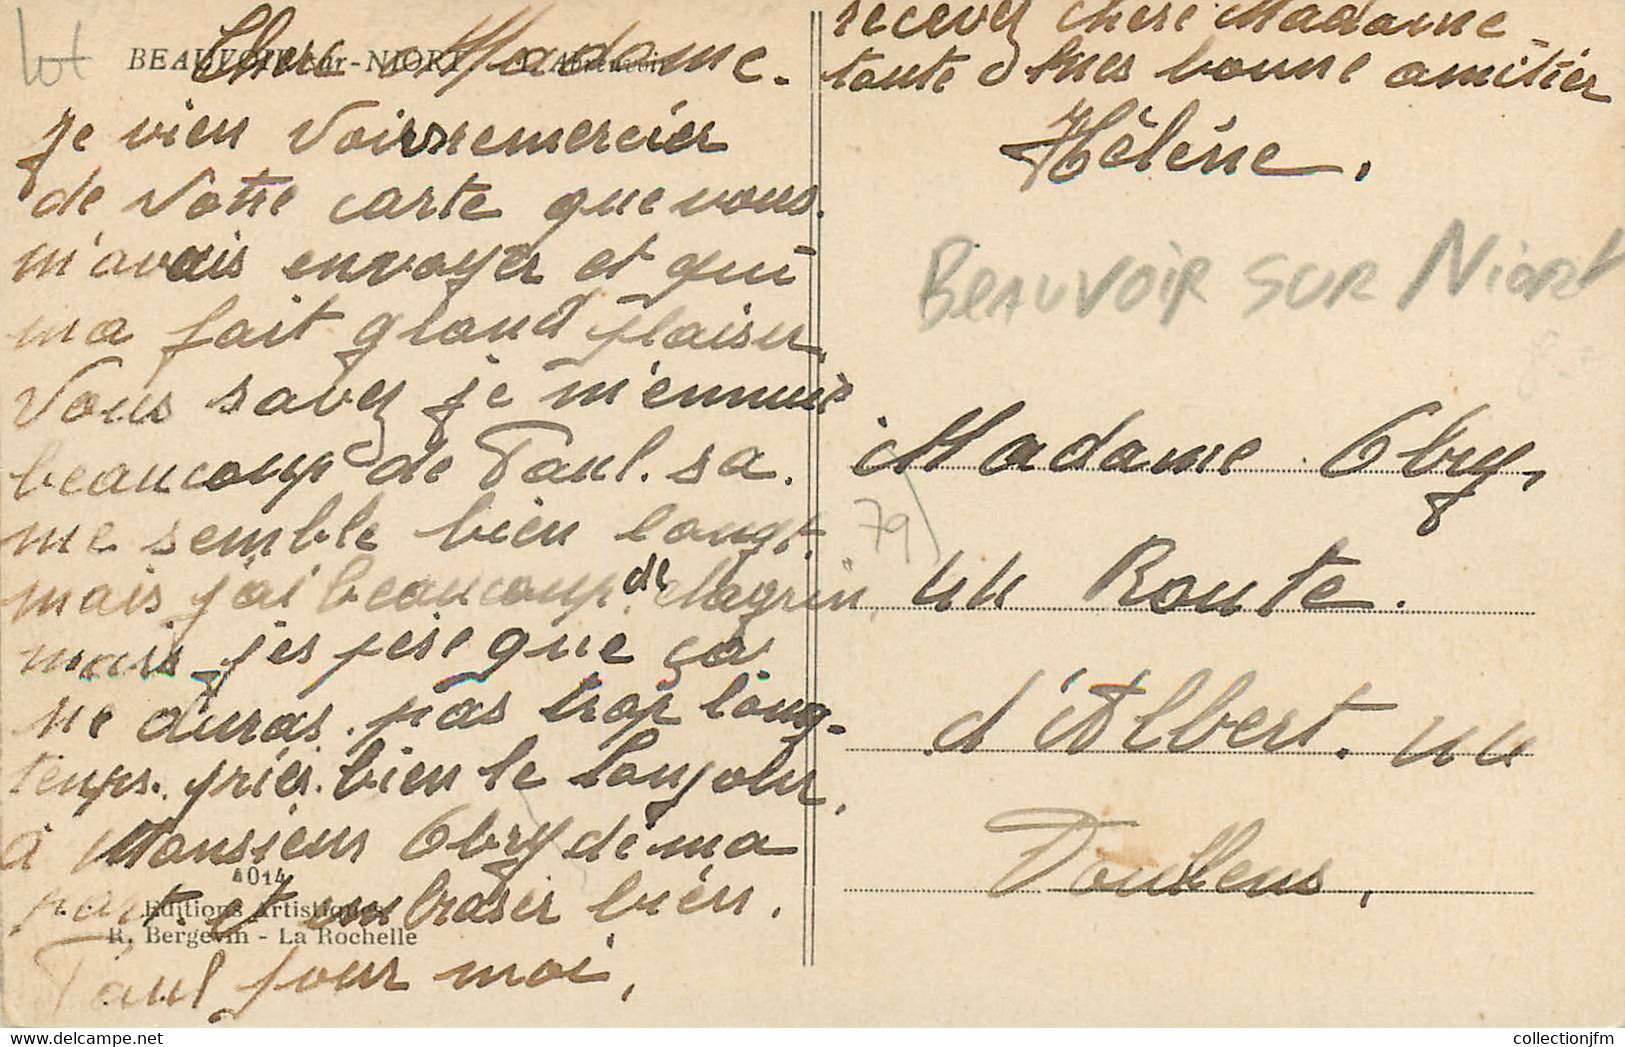 lot
BEAUVOIR-sur-NIORT - L'Abreuvoir
Chere Madame.
je vien Vous remercier
de Votre carte que vous.
m'avais envoyer et qui
ma fait grand plaisir,
Vous savez je m'ennuie
beaucoup de Paul. sa.
me semble bien longt.
mais j'ai beaucoup de chagrin,
mais j'espese que ça
ne duras pas trop long-
temps. priér. bien le bonjour,
à Monsieur Obry de ma
part. et embraser bien.
Paul pour moi,
4014
Editions Artistiques
R. Bergevin - La Rochelle
recevez chere Madame
toute mes bonne amitier
Hélène.
BEAUVOIR SUR NIORT
79)
Madame Obry,
44 Route.
d'Albert. 44
Doullens,
collectionjfm